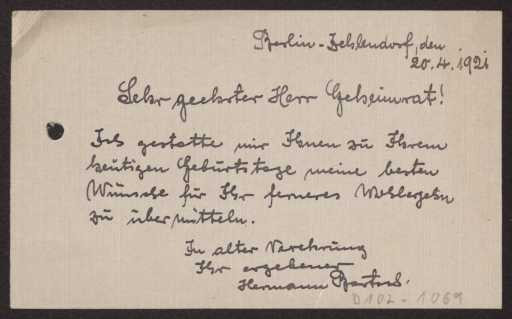 Berlin-Zehlendorf, den
20.4.1921
Sehr geehrter Herr Geheimrat!
Ich gestatte mir Ihnen zu Ihrem
heutigen Geburtstage meine besten
Wünsche für Ihr ferneres Wohlergehn
zu übermitteln.
In alter Verehrung
Ihr ergebener
Hermann
D102-1069